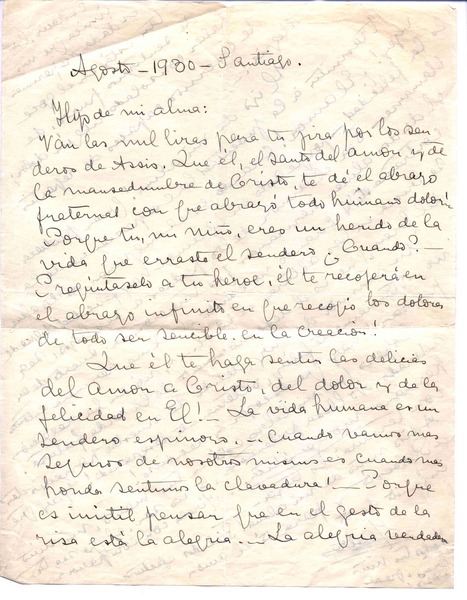 Agosto - 1930 - Santiago.
Hijo de mi alma:
Van las mil liras para tu jira por los sen
deros de Assis. Que él, el santo del amor y de
la mansedumbre de Cristo, te dé el abrazo
fraternal con que abrazó todo humano dolor!
Porque tú, mi niño, eres un herido de la
vida que errasto el sendero ¿Cuando? -
Pregúntaselo a tu heroe, él te recogerá en
el abrazo infinito en que recojió los dolores
de todo ser sencible en la creación!
Que él te haga sentir las delicias
del Amor a Cristo, del dolor y de la
felicidad en El! - La vida humana es un
sendero espinoso. - Cuando vamos mas
seguros de nosotros mismos es cuando mas
honda sentimos la clavadura! - Porque
es inútil pensar que en el gesto de la
risa está la alegria... La alegria verdadera